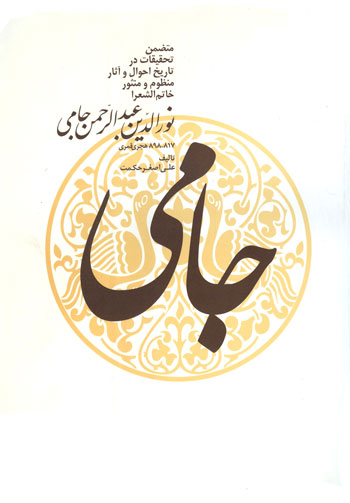 متضمن
تحقیقات در
تاریخ احوال و آثار
منظوم و منثور
خاتم الشعرا
نورالدین عبدالرحمن جامی
۸۹۸،۸۱۷ هجری قمری
تالیف
علی اصغر حکمت
جامی